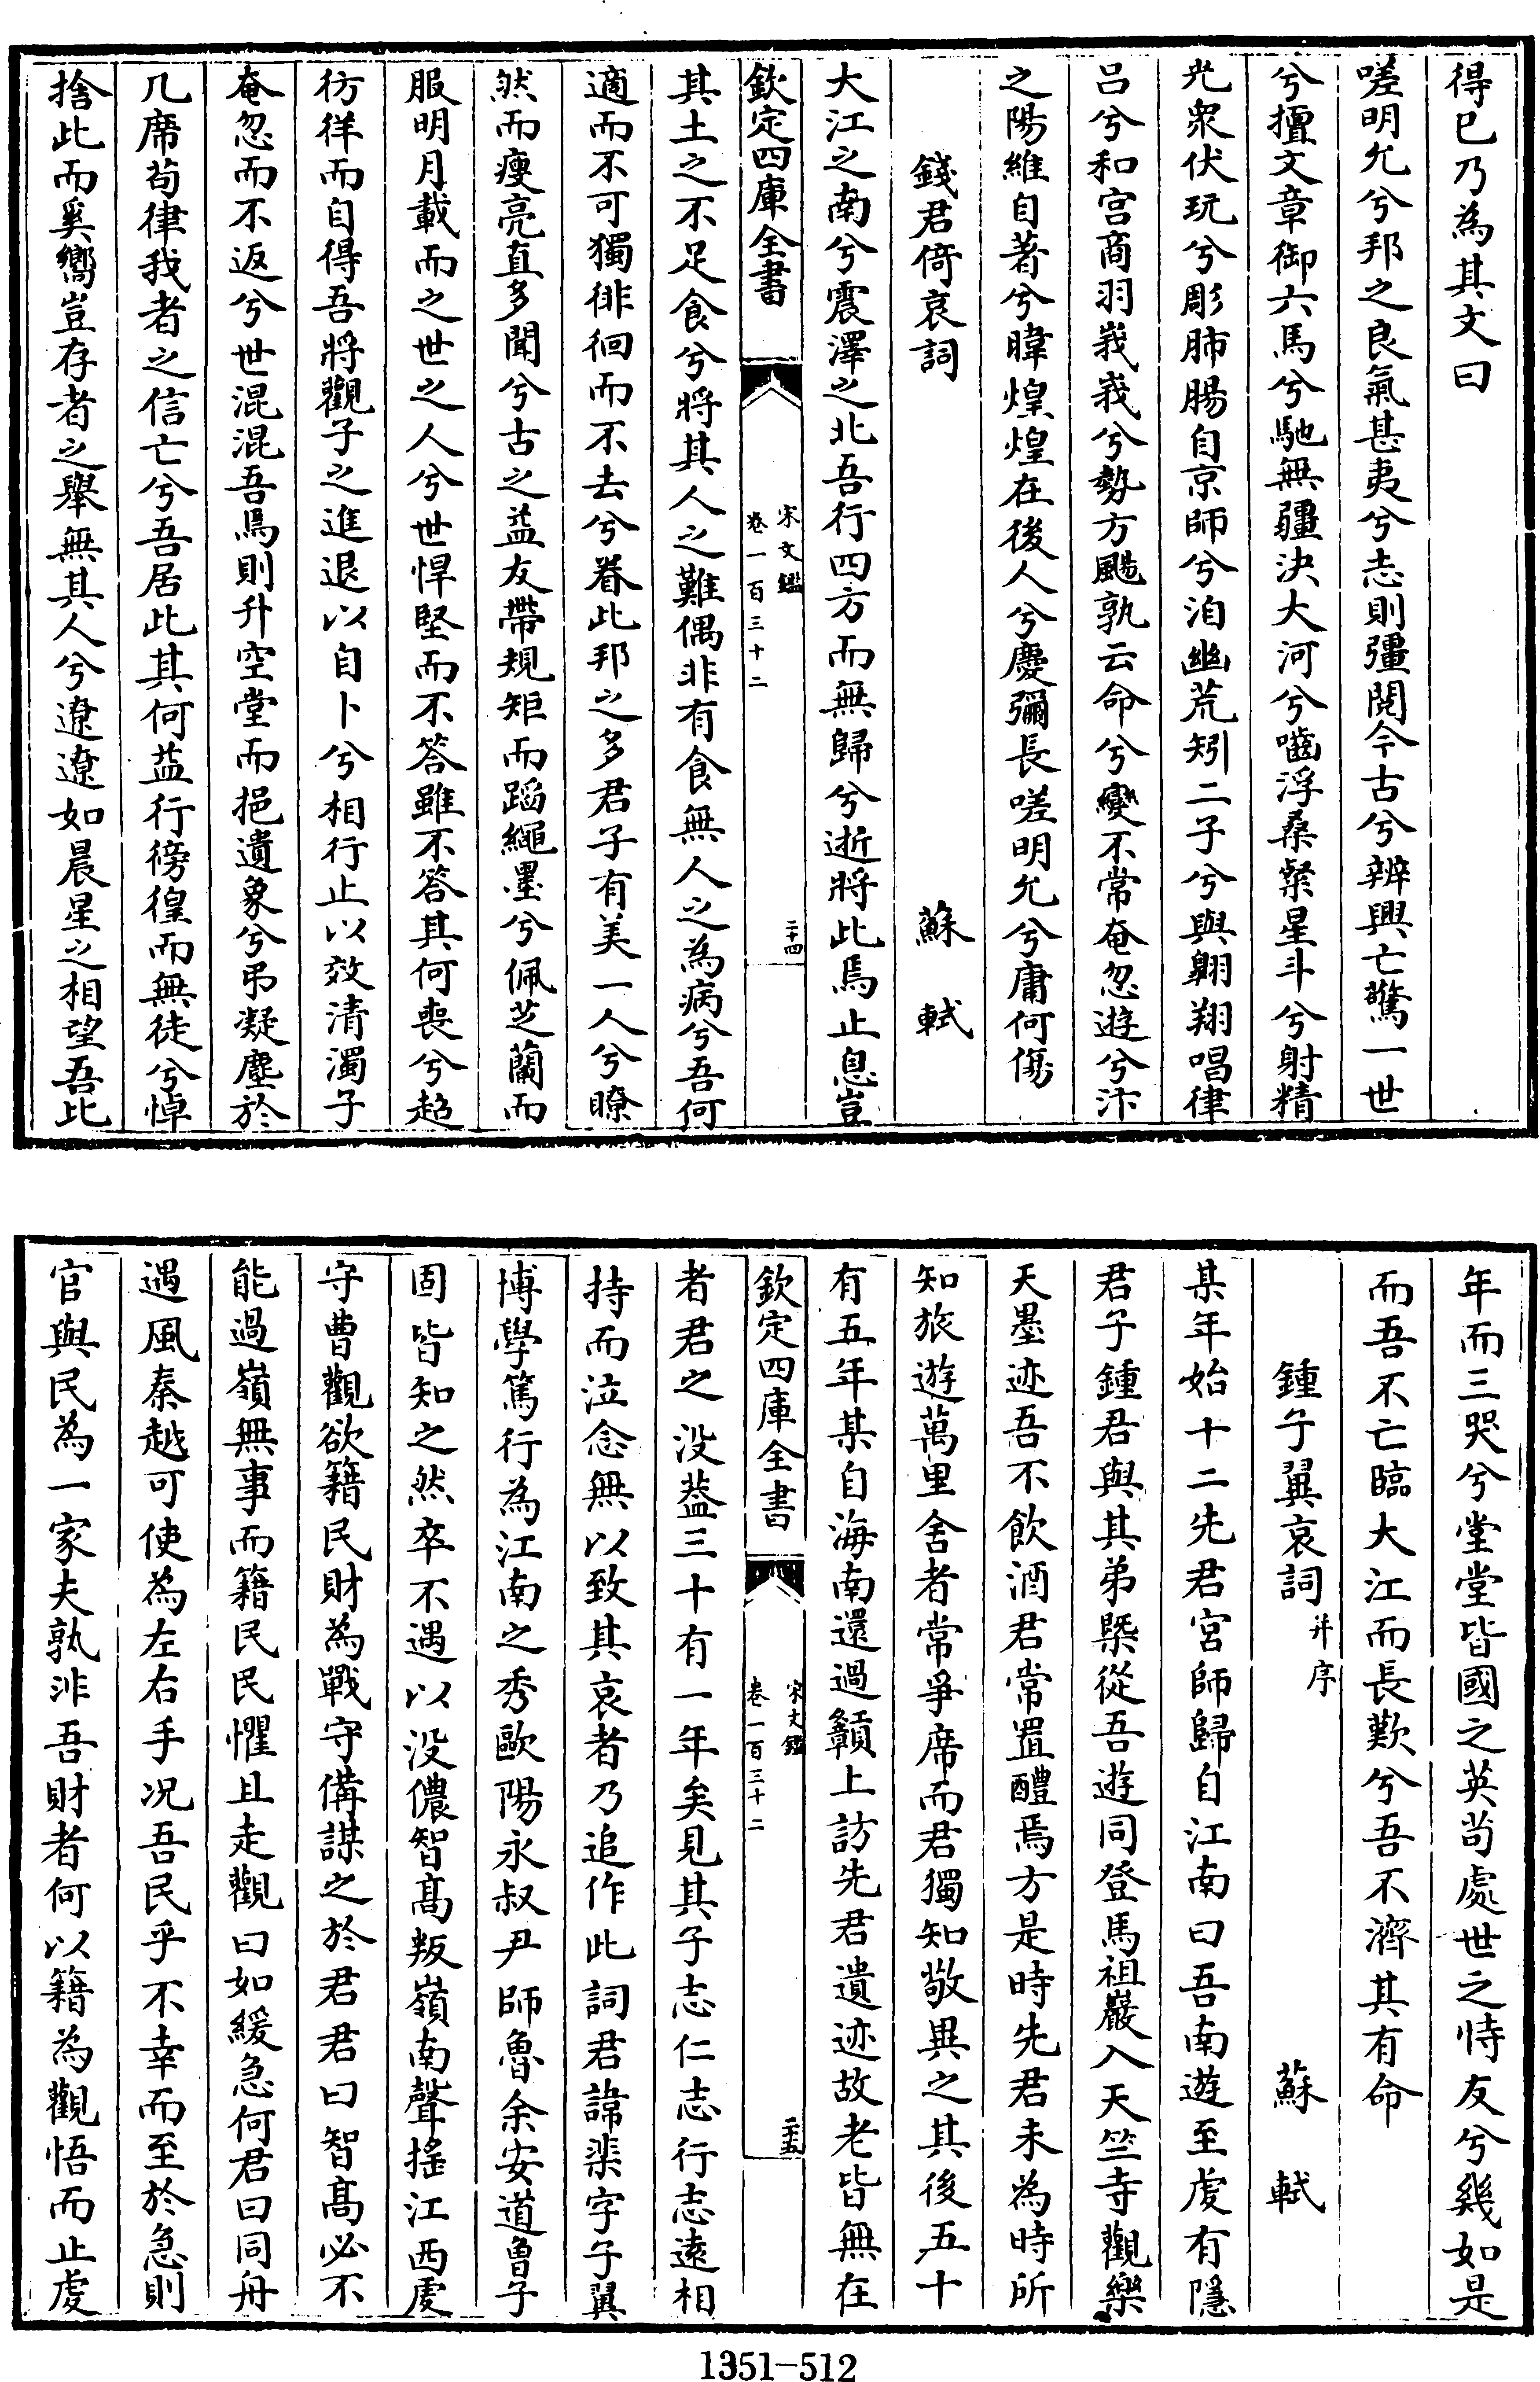 得已乃為其文曰
嗟明允兮邦之良氣甚夷兮志則彊閱今古兮辨興亡驚一世
兮擅文章御六馬兮馳無疆決大河兮嚙浮桑粲星斗兮射精
光衆伏玩兮彫肺腸自京師兮洎幽荒矧二子兮與翺翔唱律
呂兮和宮商羽峩峩兮勢方颺孰云命兮變不常奄忽遊兮汴
之陽維自著兮暐煌煌在後人兮慶彌長嗟明允兮庸何傷
錢君倚哀詞 蘇軾
大江之南兮震澤之北吾行四方而無歸兮逝將此焉止息豈
欽定四庫全書 宋文鑑 卷一百三十二 二十四
其土之不足食兮將其人之難偶非有食無人之為病兮吾何
適而不可獨徘徊而不去兮眷此邦之多君子有美一人兮瞭
然而瘦亮直多聞兮古之益友帶規矩而蹈繩墨兮佩芝蘭而
服明月載而之世之人兮世悍堅而不答雖不答其何喪兮超
彷徉而自得吾將觀子之進退以自卜兮相行止以效清濁子
奄忽而不返兮世混混吾焉則升空堂而挹遺象兮弔凝塵於
几席苟律我者之信亡兮吾居此其何益行徬徨而無徒兮悼
捨此而奚嚮豈存者之舉無其人兮遼遼如晨星之相望吾比
年而三哭兮堂堂皆國之英苟處世之恃友兮幾如是
而吾不亡臨大江而長歎兮吾不濟其有命
鍾子翼哀詞并序 蘇軾
某年始十二先君宮師歸自江南曰吾南遊至虔有隱
君子鍾君與其弟槩從吾遊同登馬祖巖入天竺寺觀樂
天墨迹吾不飲酒君常置醴焉方是時先君未為時所
知旅遊萬里舍者常爭席而君獨知敬異之其後五十
有五年某自海南還過贑上訪先君遺迹故老皆無在
欽定四庫全書 宋文鑑 卷一百三十二 二十五
者君之没葢三十有一年矣見其子志仁志行志遠相
持而泣念無以致其哀者乃追作此詞君諱棐字子翼
博學篤行為江南之秀歐陽永叔尹師魯余安道曾子
固皆知之然卒不遇以没儂智髙叛嶺南聲搖江西虔
守曹觀欲籍民財為戰守備謀之於君君曰智髙必不
能過嶺無事而籍民民懼且走觀曰如緩急何君曰同舟
遇風秦越可使為左右手况吾民乎不幸而至於急則
官與民為一家夫孰非吾財者何以籍為觀悟而止虔
1351-512